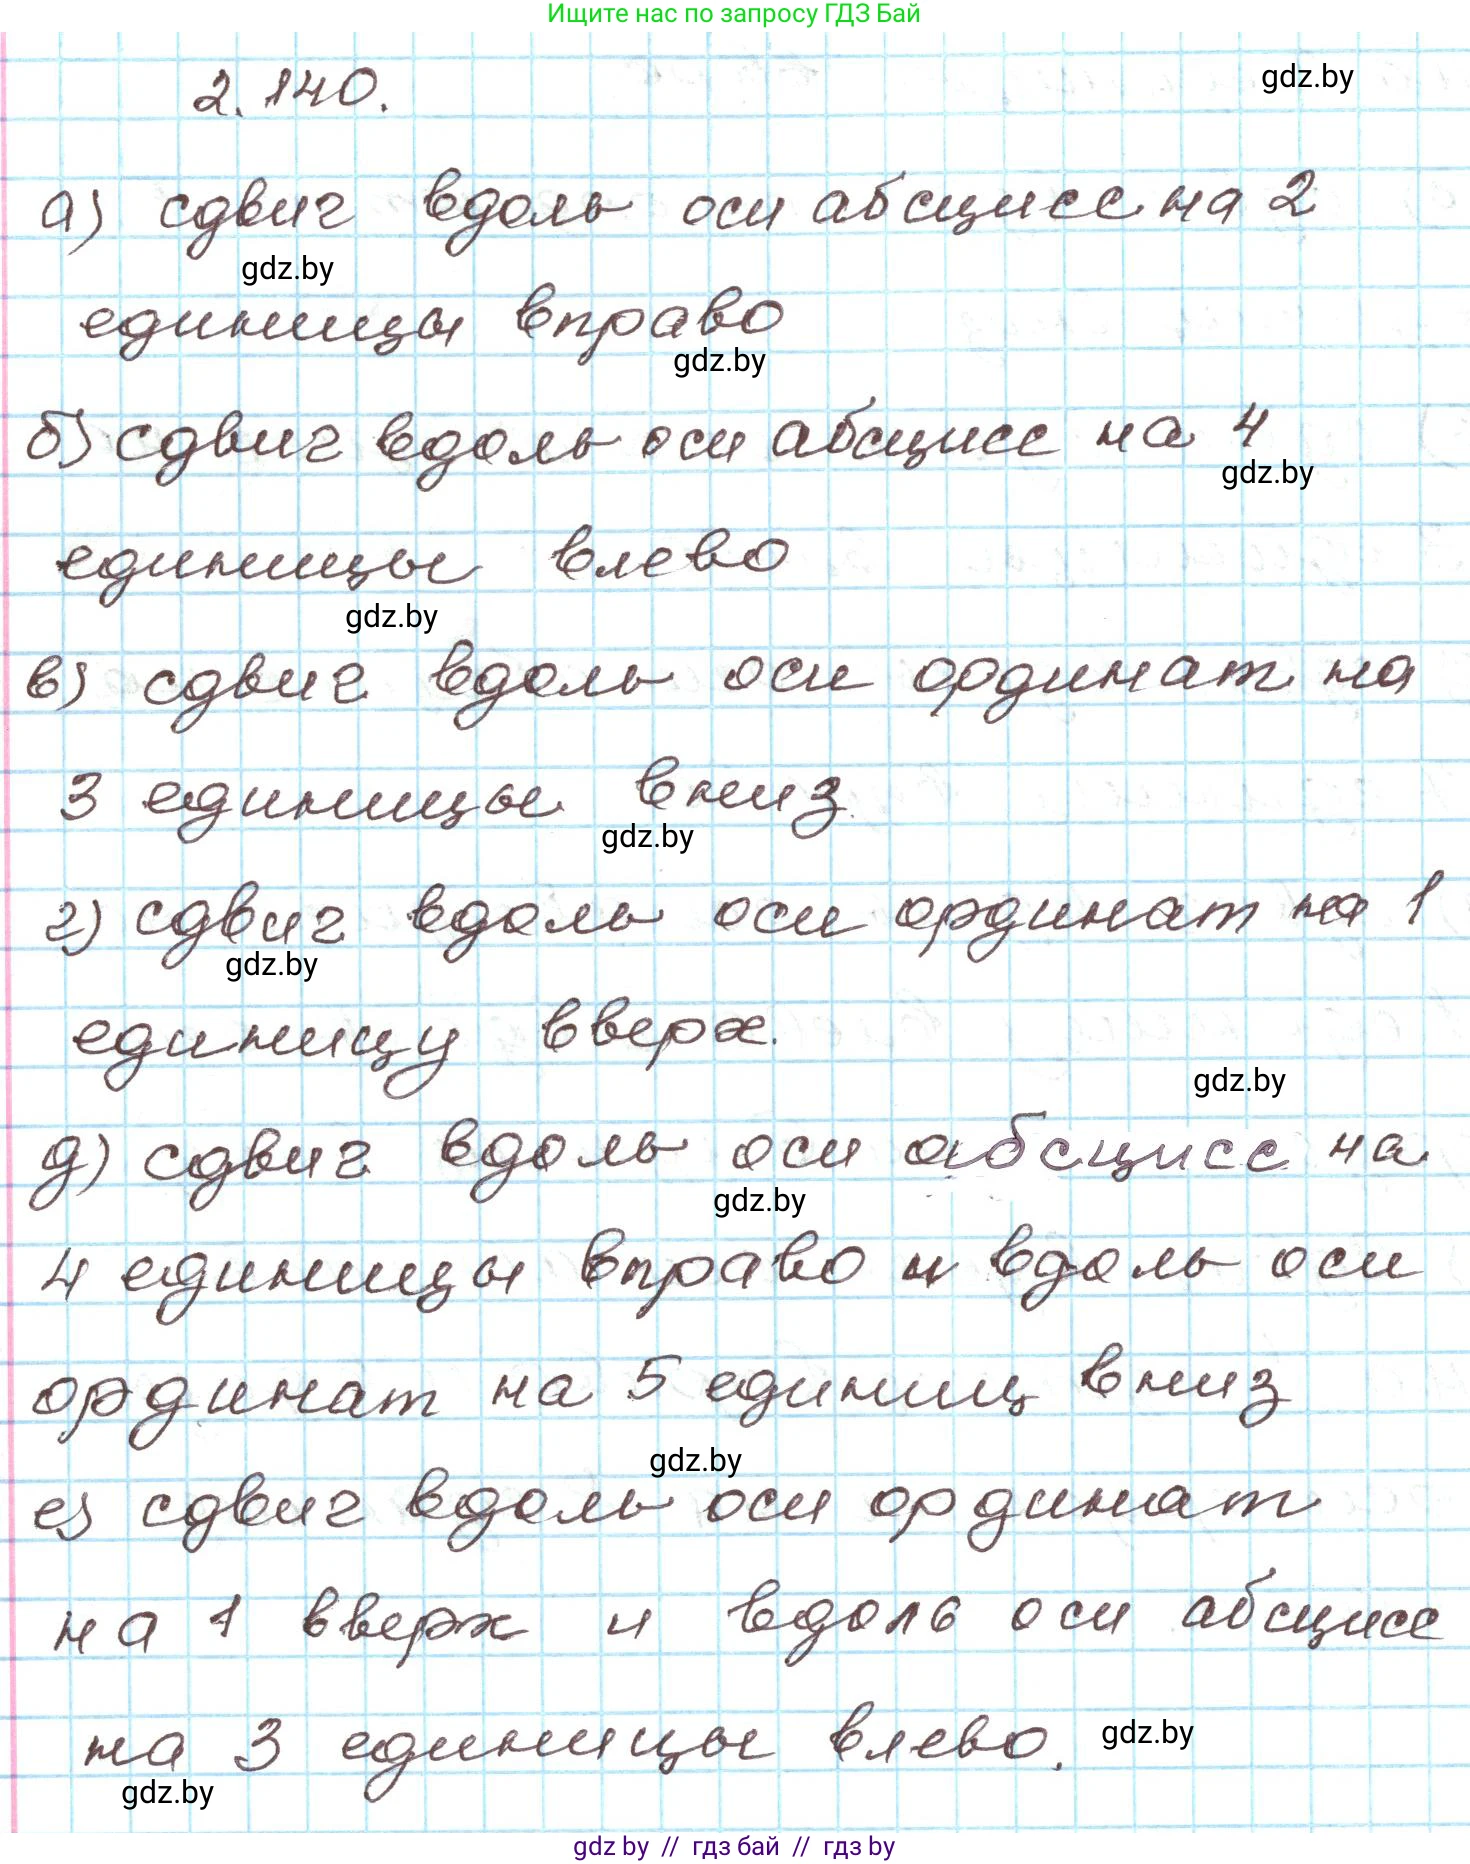 Ищите нас по запросу ГДЗ Бай
2.140.
gdz.by
а) сдвиг вдоль оси абсцисс на 2
gdz.by
единицы вправо
gdz.by
б) сдвиг вдоль оси абсцисс на 4
gdz.by
единицы влево
gdz.by
в) сдвиг вдоль оси ординат на
3 единицы вниз.
gdz.by
г) сдвиг вдоль оси ординат на 1
gdz.by
единицу вверх.
gdz.by
д) сдвиг вдоль оси абсцисс на
gdz.by
4 единицы вправо и вдоль оси
ординат на 5 единиц вниз
gdz.by
е) сдвиг вдоль оси ординат
на 1 вверх и вдоль оси абсцисс
на 3 единицы влево.
gdz.by
gdz.by
gdz.by // гдз бай // гдз by